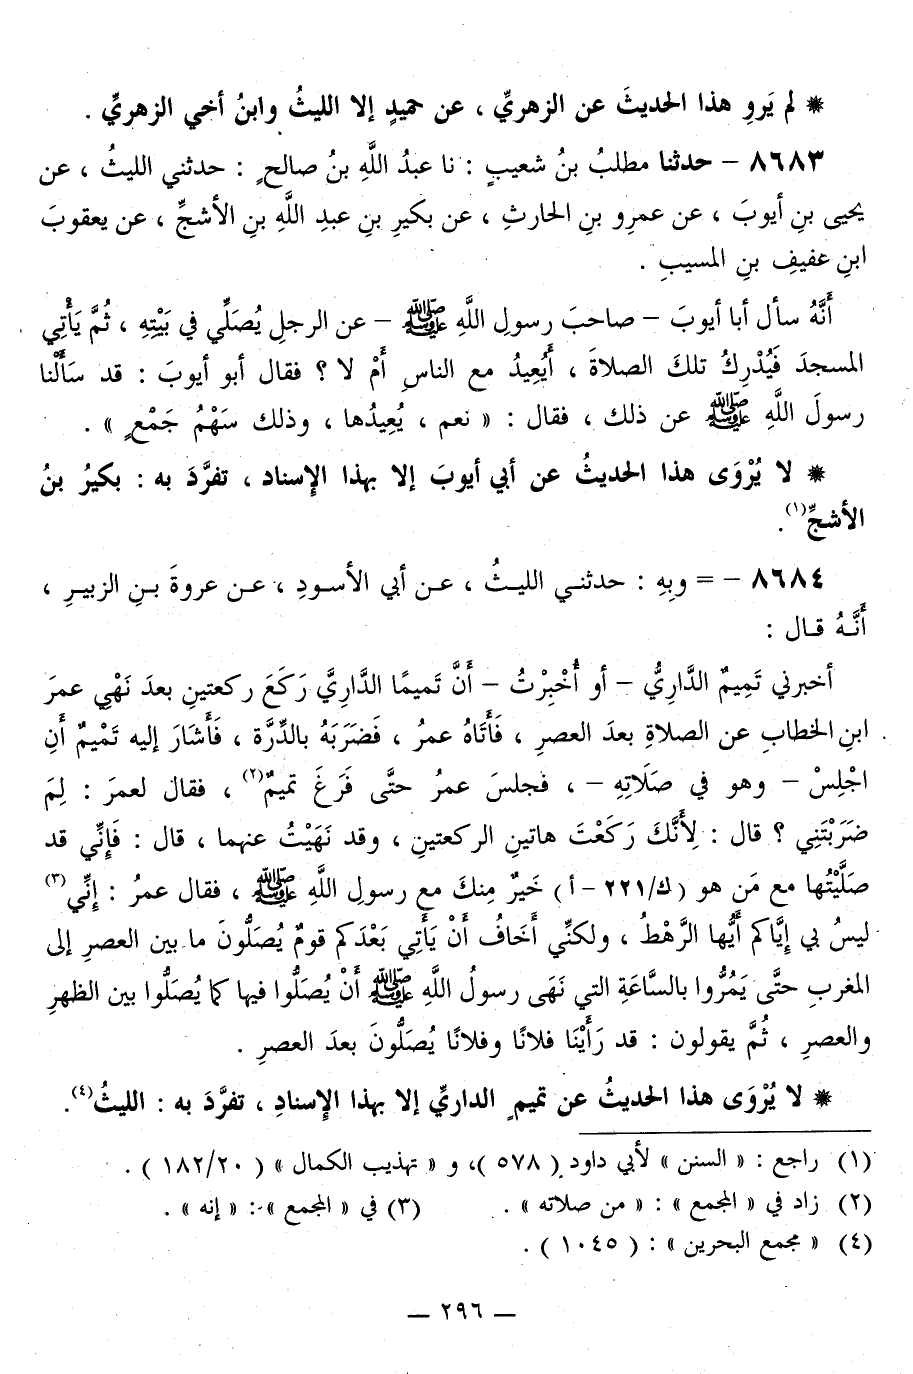 * لم يَروِ هذا الحديثَ عن الزهريِّ ، عن حميدٍ إلا الليثُ وابنُ أخي الزهريِّ .
٨٦٨٣ – حدثنا مطلبُ بنُ شعيبٍ : نا عبدُ اللَّهِ بنُ صالحٍ : حدثني الليثُ ، عن
يحيى بنِ أيوبَ ، عن عمرِو بنِ الحارثِ ، عن بكيرِ بنِ عبدِ اللَّهِ بنِ الأشجِّ ، عن يعقوبَ
ابنِ عفيفِ بنِ المسيبِ .
أَنَّهُ سأل أبا أيوبَ – صاحبَ رسولِ اللَّهِ ﷺ – عن الرجلِ يُصَلِّي في بَيْتِهِ ، ثُمَّ يَأْتِي
المسجدَ فَيُدْرِكُ تلكَ الصلاةَ ، أَيُعِيدُ مع الناسِ أَمْ لا ؟ فقال أبو أيوبَ : قد سَأَلْنا
رسولَ اللَّهِ ﷺ عن ذلك ، فقال : « نعم ، يُعِيدُها ، وذلك سَهْمُ جَمْعٍ » .
* لا يُرْوَى هذا الحديثُ عن أبي أيوبَ إلا بهذا الإسنادِ ، تفرَّدَ به : بكيرُ بنُ
الأشجِّ(١).
٨٦٨٤ – = وبِهِ : حدثني الليثُ ، عن أبي الأسودِ ، عن عروةَ بنِ الزبيرِ ،
أَنَّهُ قال :
أخبرني تَمِيمٌ الدَّاريُّ – أو أُخْبِرْتُ – أَنَّ تَميمًا الدَّاريَّ رَكَعَ ركعتينِ بعدَ نَهْيِ عمرَ
ابنِ الخطابِ عن الصلاةِ بعدَ العصرِ ، فَأَتَاهُ عمرُ ، فَضَرَبَهُ بالدِّرَّة ، فَأَشَارَ إليه تَمْيمٌ أَنِ
اجْلِسْ – وهو في صَلَاتِهِ – ، فجلسَ عمرُ حتَّى فَرَغَ تميمٌ(٢) ، فقال لعمرَ : لِمَ
ضَرَبْتَنِي ؟ قال : لِأَنَّكَ رَكَعْتَ هاتينِ الركعتينِ ، وقد نَهَيْتُ عنهما ، قال : فَإِنِّي قد
صلَّيْتُها مع مَن هو (ك/٢٢١–أ) خَيرٌ مِنكَ مع رسولِ اللَّهِ ﷺ ، فقال عمرُ : إِنِّي(٣)
ليسُ بي إيَّاكم أَيُّها الرَّهْطُ ، ولكنِّي أَخَافُ أَنْ يَأْتِي بَعْدَكم قومٌ يُصَلُّونَ ما بين العصرِ إلى
المغربِ حتَّى يَمُرُّوا بالسَّاعَةِ التي نَهَى رسولُ اللَّهِ ﷺ أَنْ يُصَلُّوا فيها كما يُصَلُّوا بين الظهرِ
والعصرِ ، ثُمَّ يقولون : قد رَأَيْنَا فلانًا وفلانًا يُصَلُّونَ بعدَ العصرِ .
* لا يُرْوَى هذا الحديثُ عن تميمٍ الداريِّ إلا بهذا الإسنادِ ، تفرَّدَ به : الليثُ(٤).
(١) راجع : « السنن » لأبي داود ( ٥٧٨ )، و « تهذيب الكمال » ( ١٨٢/٢٠ ) .
(٢) زاد في « المجمع » : « من صلاته » . (٣) في « المجمع » : « إنه » .
(٤) « مجمع البحرين » : ( ١٠٤٥ ) .
— ٢٩٦ —